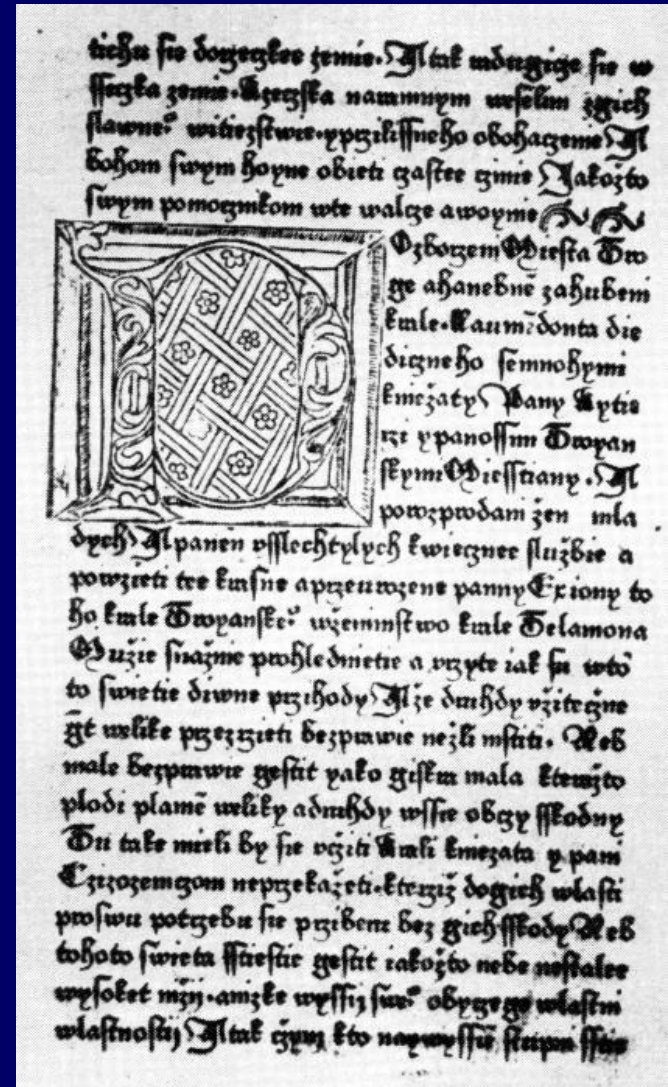 tichu sie dorzeczkee zemie. A tak radugicze sie w
sseczka zemie. Rzeczska naramnym weselim zgich
slawneº witiezstwie. yprzilissneho obohaczenie A
bohom swym hoyne obieti czastee czinie Jakozto
swym pomocznikom wte walcze awoynie
Ozborzem Miesta Tro
ge ahanebnē zahubeni
krale. Laumedonta die
diczneho semnohymi
kniezaty Pany Rytie
rzi ypanossmi Troyan
skymi Miesstiany. A
porozprodani zen mla
dych A panen vsslechtylych kwiecznee sluzbie a
powzieti tee krasne aprzeurozene panny Exiony to
ho krale Troyanskeº wzeninstwo krale Telamona
Muzie snaznie prohlednietie a vrzyte iak su wtō
to swietie diwne przihody A ze druhdy vziteczne
gt welike przezrzieti bezprawie nezli mstiti. Neb
male bezprawie gestit yako giskra mala kterazto
plodi plamē weliky adruhdy wssie obczy sskodny
Tu take mieli by sie vcziti Krali kniezata y pani
Czizozemczom neprzekazeti. kterziz dogich wlasti
proswu potrzebu sie prziberu bez gich sskody Neb
tohoto swieta sstiestie gestit iakozto nebe nestalee
wysoket nizij. anizke wyssij sweº obyczege wlastni
wlastnostij A tak czym kto naywyssie stupni sstie